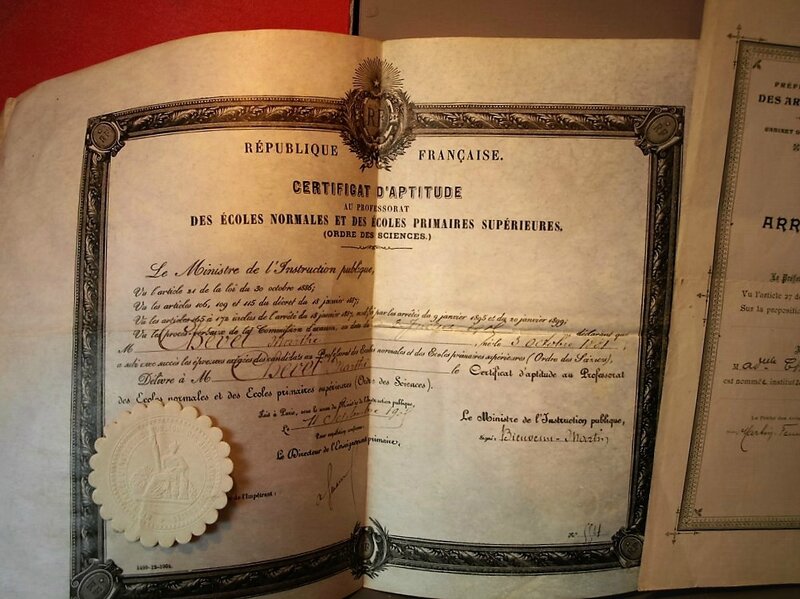 RF
RÉPUBLIQUE FRANÇAISE.
CERTIFICAT D'APTITUDE
AU PROFESSORAT
DES ÉCOLES NORMALES ET DES ÉCOLES PRIMAIRES SUPÉRIEURES.
(ORDRE DES SCIENCES.)
Le Ministre de l'Instruction publique,
Vu l'article 21 de la loi du 30 octobre 1886;
Vu les articles 106, 109 et 115 du décret du 18 janvier 1887;
Vu les articles à 172 inclus de l'arrêté du 18 janvier 1887, modifié par les arrêtés du 9 janvier 1895 et du 20 janvier 1899;
Vu les procès-verbaux de la Commission d'examen, en date du déclarant que
M Marthe née le 3 octobre
a subi avec succès les épreuves exigées des candidats au Professorat des Écoles normales et des Écoles primaires supérieures (Ordre des Sciences),
Délivre à M Marthe le Certificat d'aptitude au Professorat
des Écoles normales et des Écoles primaires supérieures (Ordre des Sciences).
Fait à Paris, sous le sceau du Ministère de l'Instruction publique,
Le
Pour expédition conforme:
Le Directeur de l'Enseignement primaire,
Le Ministre de l'Instruction publique,
Signé: Bienvenu-Martin
de l'Impétrant:
N°
DES AR
CABINET
ARR
Le Préfe
Vu l'article 27 de
Sur la propositio
M
est nommée institut